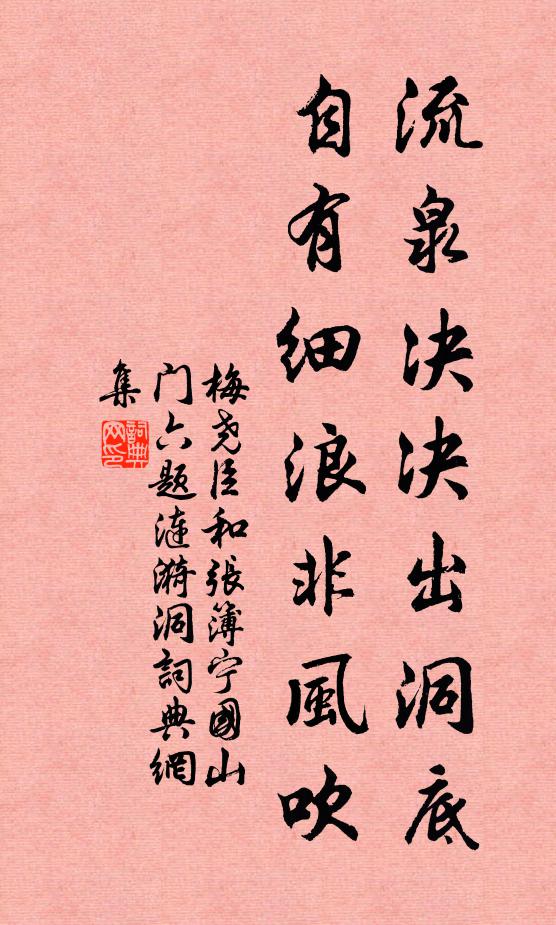 流泉决决出洞底
自有细浪非風吹
梅尧臣和張簿宁國山
门六题涟漪洞詞典網
集
詞典
网印